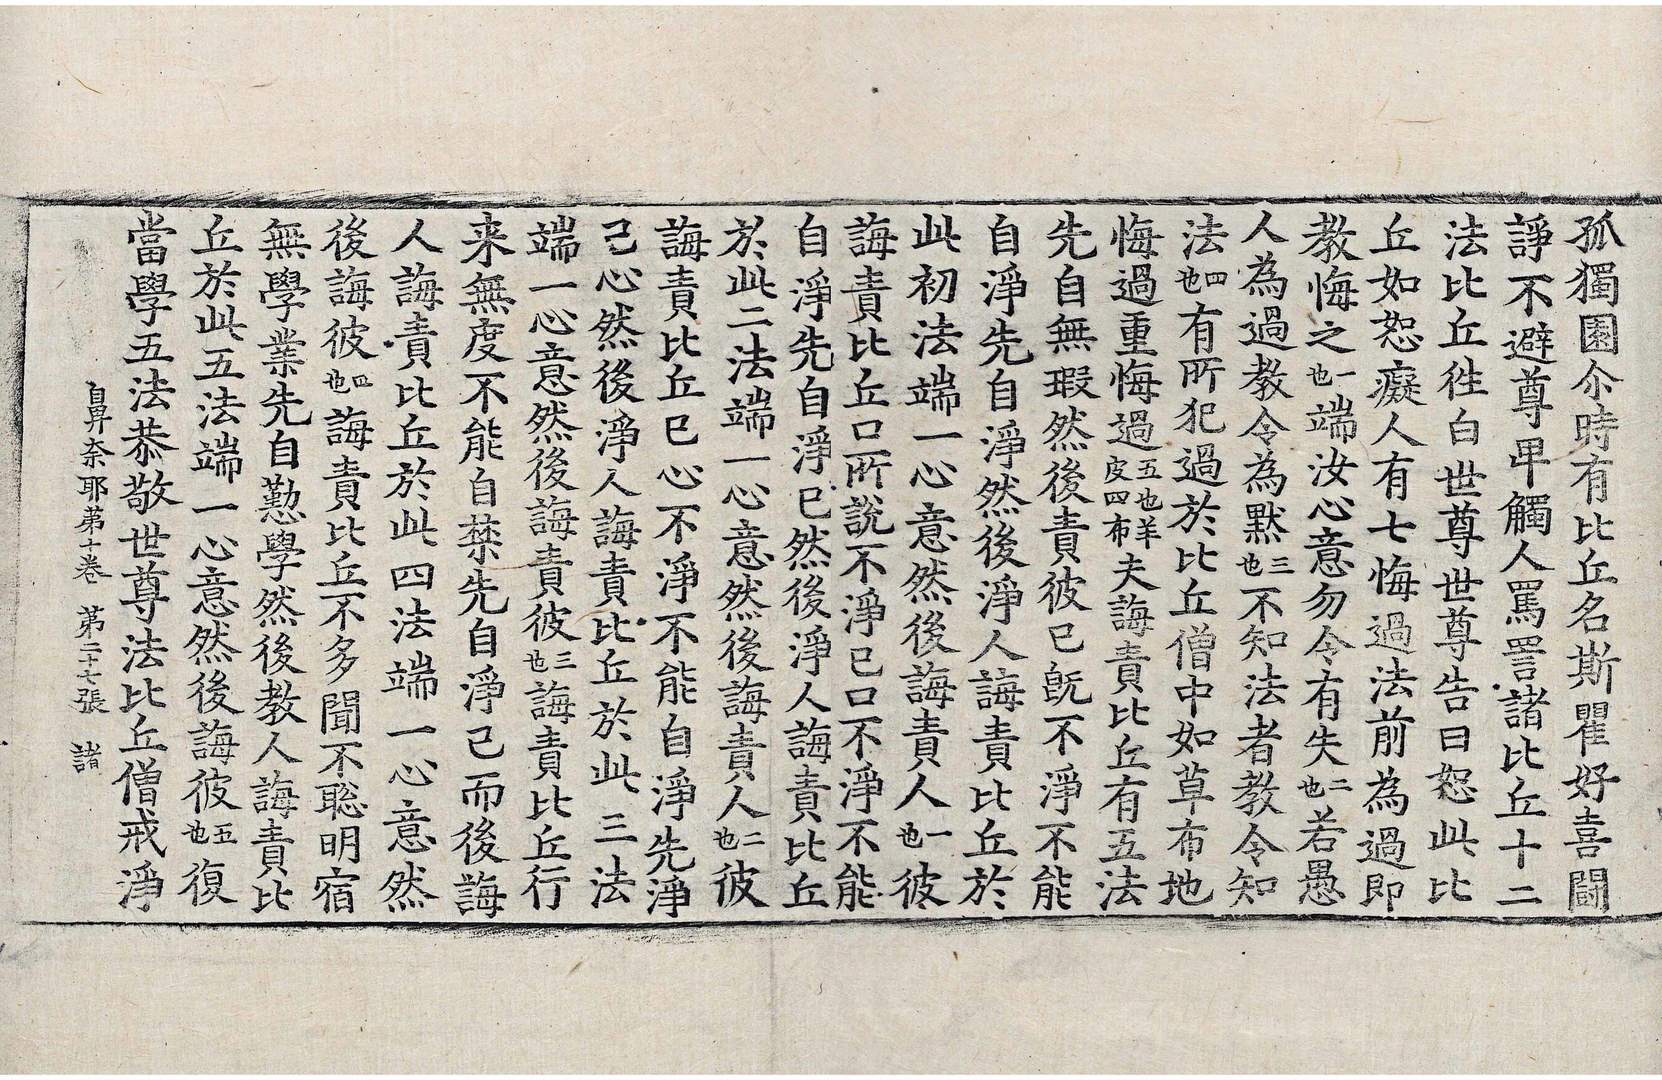 孤獨園尒時有比丘名斯瞿好喜鬪
諍不避尊卑觸人罵詈諸比丘十二
法比丘徃白世尊世尊告曰恕此比
丘如恕癡人有七悔過法前為過即
教悔之一也端汝心意勿令有失二也若愚
人為過教令為默三也不知法者教令知
法四也有所犯過於比丘僧中如草布地
悔過重悔過五也羊皮四布夫誨責比丘有五法
先自無瑕然後責彼已既不淨不能
自淨先自淨然後淨人誨責比丘於
此初法端一心意然後誨責人一也彼
誨責比丘口所說不淨已口不淨不能
自淨先自淨已然後淨人誨責比丘
於此二法端一心意然後誨責人二也彼
誨責比丘已心不淨不能自淨先淨
己心然後淨人誨責比丘於此三法
端一心意然後誨責彼三也誨責比丘行
来無度不能自禁先自淨己而後誨
人誨責比丘於此四法端一心意然
後誨彼四也誨責比丘不多聞不聡明宿
無學業先自懃學然後教人誨責比
丘於此五法端一心意然後誨彼五也復
當學五法恭敬世尊法比丘僧戒淨
自鼻奈耶第十卷 第二十七張 諸